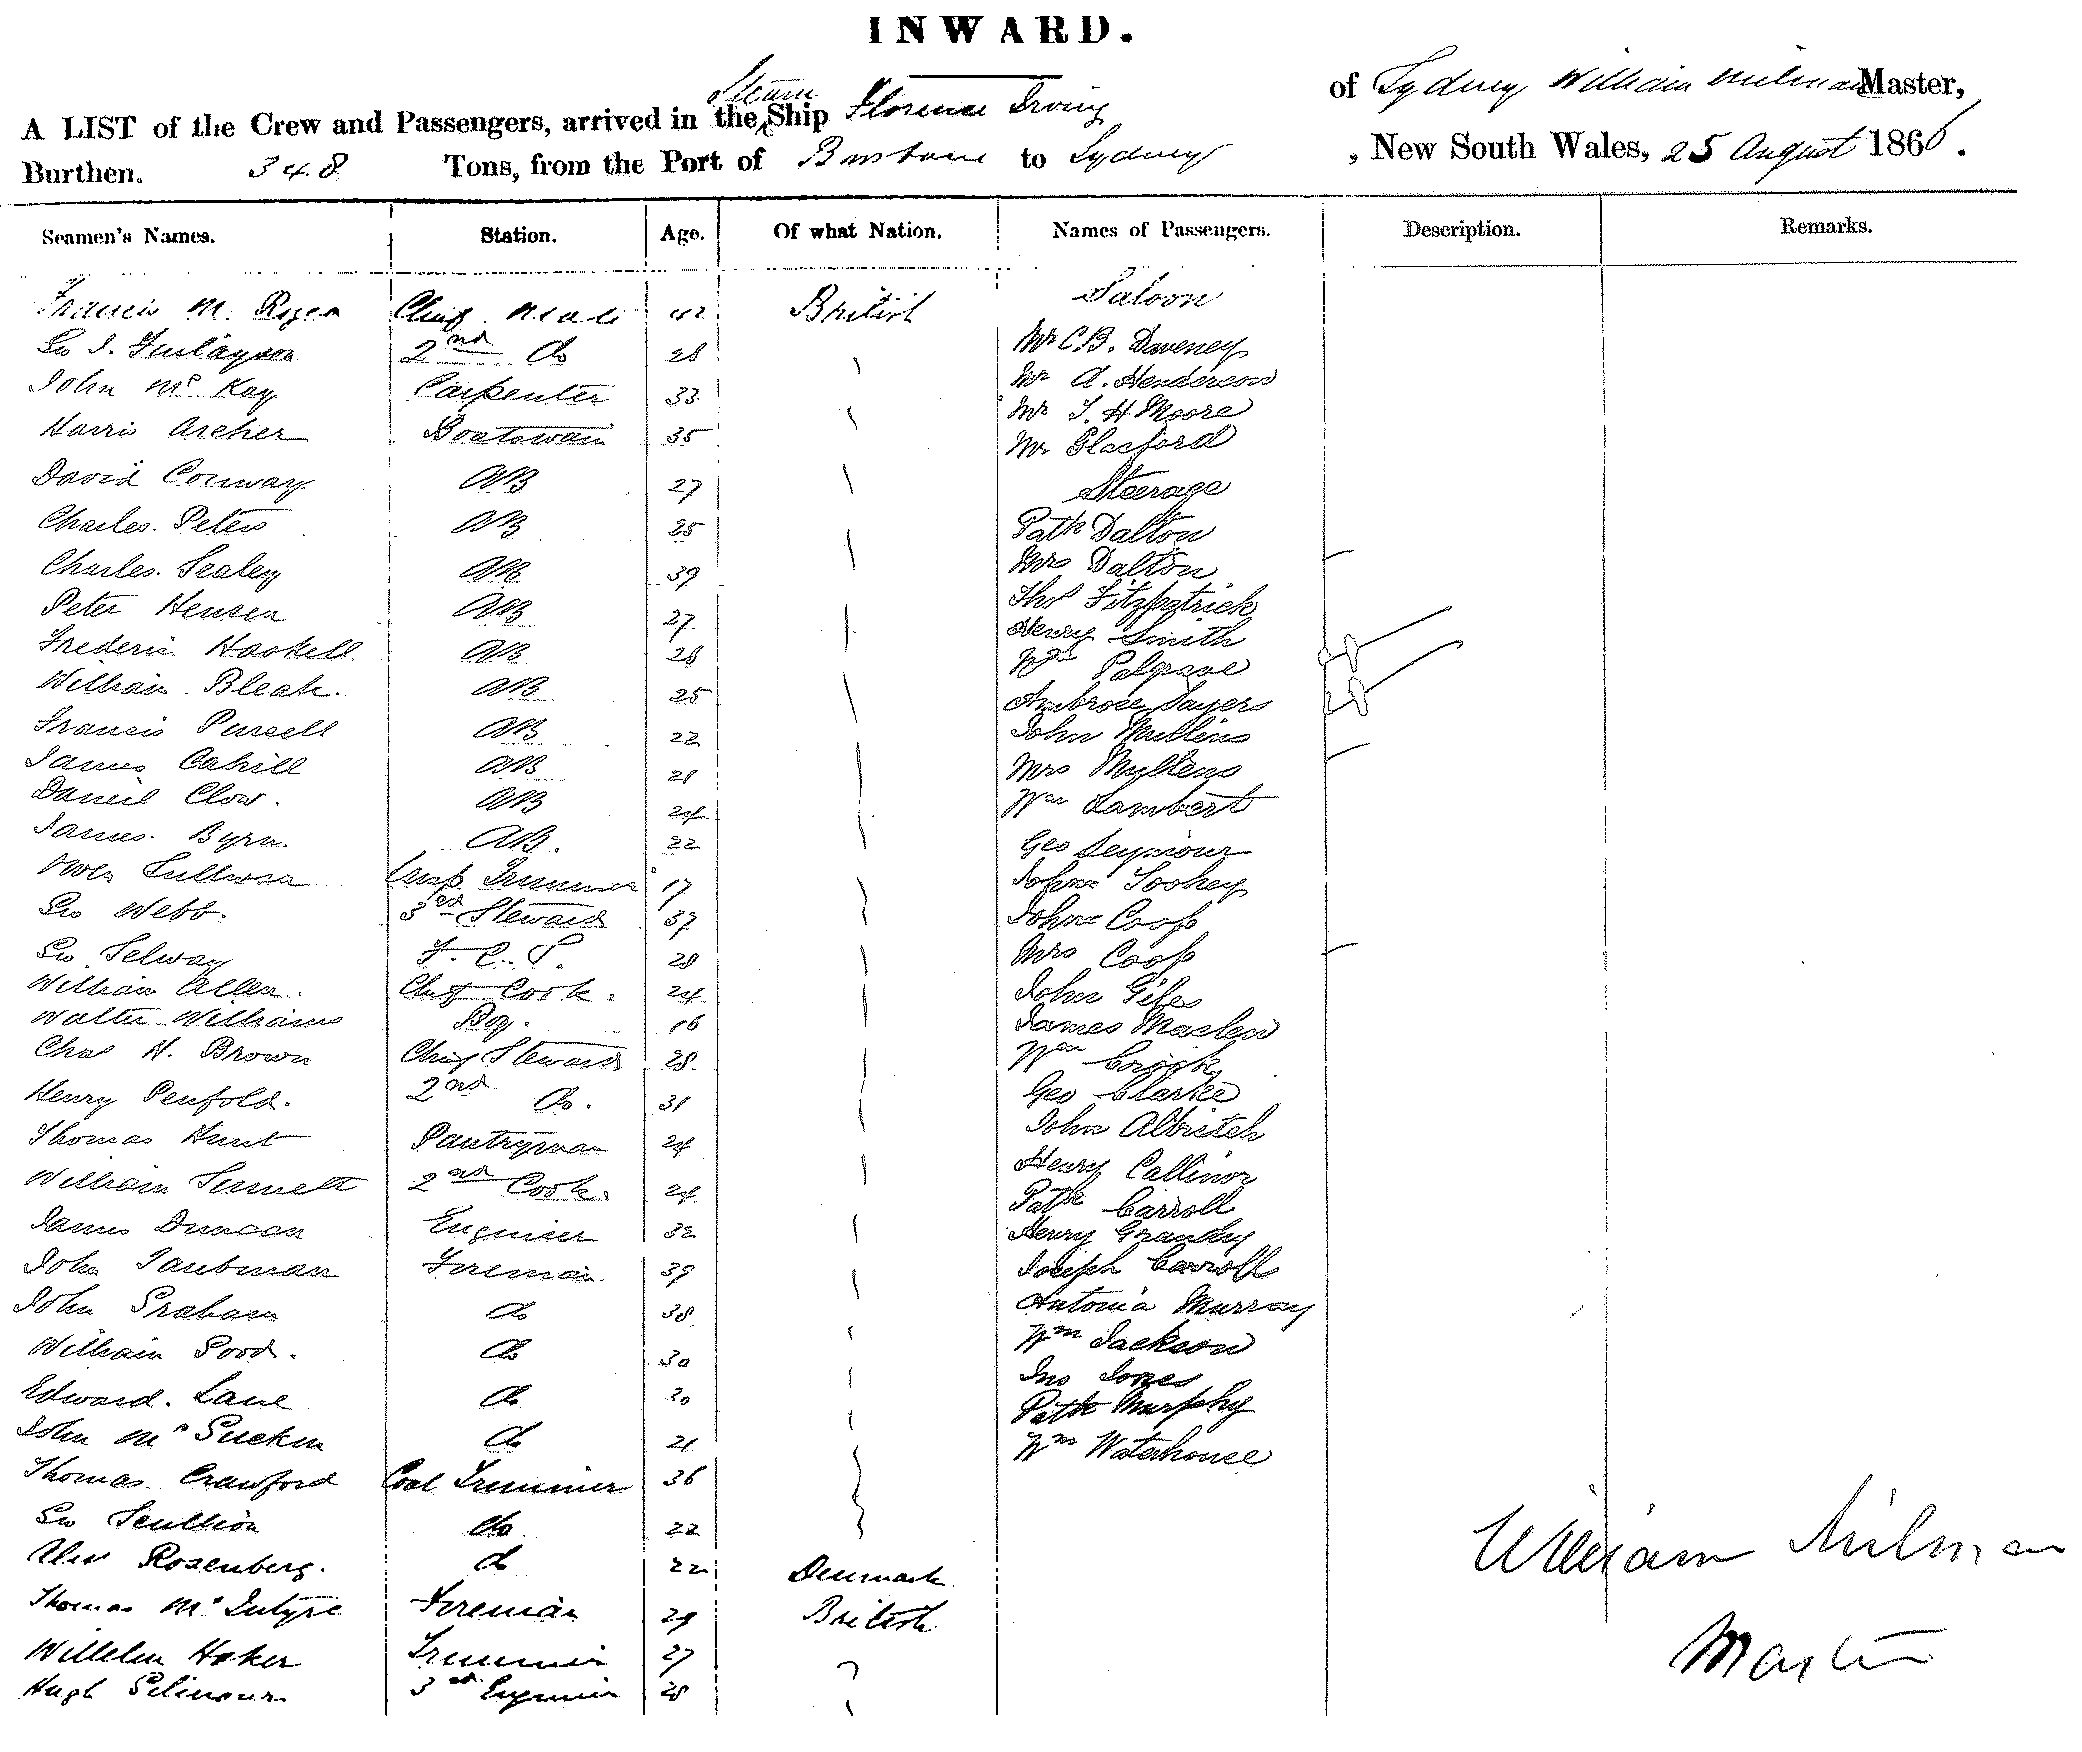 INWARD.
A LIST of the Crew and Passengers, arrived in the Steam Ship Florence Irving of Sydney William Milman Master,
Burthen. 348 Tons, from the Port of Brisbane to Sydney, New South Wales, 25 August 1866.
Seamen's Names. Station. Age. Of what Nation. Names of Passengers. Description. Remarks.
Saloon
Francis M. Chief Mate 42 British
Mr C B. Daveney
Finlayson 2nd Do 28
Mr A. Henderson
John McKay Carpenter 33
Mr T. H Moore
Harris Archer Boatswain 35
Mr Glasford
David Conway AB 27
Steerage
Charles. Peters AB 25
Patk Dalton
Mrs Dalton
Charles. Sealey AB 39
Thos Fitzpatrick
Peter Hensen AB 27
Henry Smith
Frederic Haskell AB 28
Wm Palgrave
William Bleak. AB 25
Ambrose Sayers
Francis Purcell AB 22
John Mullins
James Cahill AB 21
Mrs Mullens
Daniel Clow. AB 24
Wm Lambert
James. Byrn. AB. 22
Geo Seymour
Trimmer 17
John Toohey
Webb. 3rd Steward 37
John Coop
Selway F. C. S. 28
Mrs Coop
William Allen. Chief Cook. 24
John Giles
Walter Williams Boy. 16
James
Chas H. Brown Chief Steward 28
Wm Crook
Henry Penfold. 2nd Do. 31
Geo Clarke
Thomas Hunt Pantryman 24
John
William 2nd Cook. 24
Henry
Patk Carroll
James Duncan Engineer 32
Henry
John Taubman Fireman 39
Joseph Carroll
John Graham do 38
Antonia Murray
William Good. do 30
Wm Jackson
Jno Jones
Edward. Lane do 20
Patk Murphy
John Mc do 21
Wm Waterhouse
Thomas Crawford Coal Trimmer 36
Scullion do 22
Rosenberg. do 22 Denmark
Thomas McIntyre Fireman 29 British
Hoker Trimmer 27
Hugh Gilmour 3rd Engineer 28
William Milman
Master